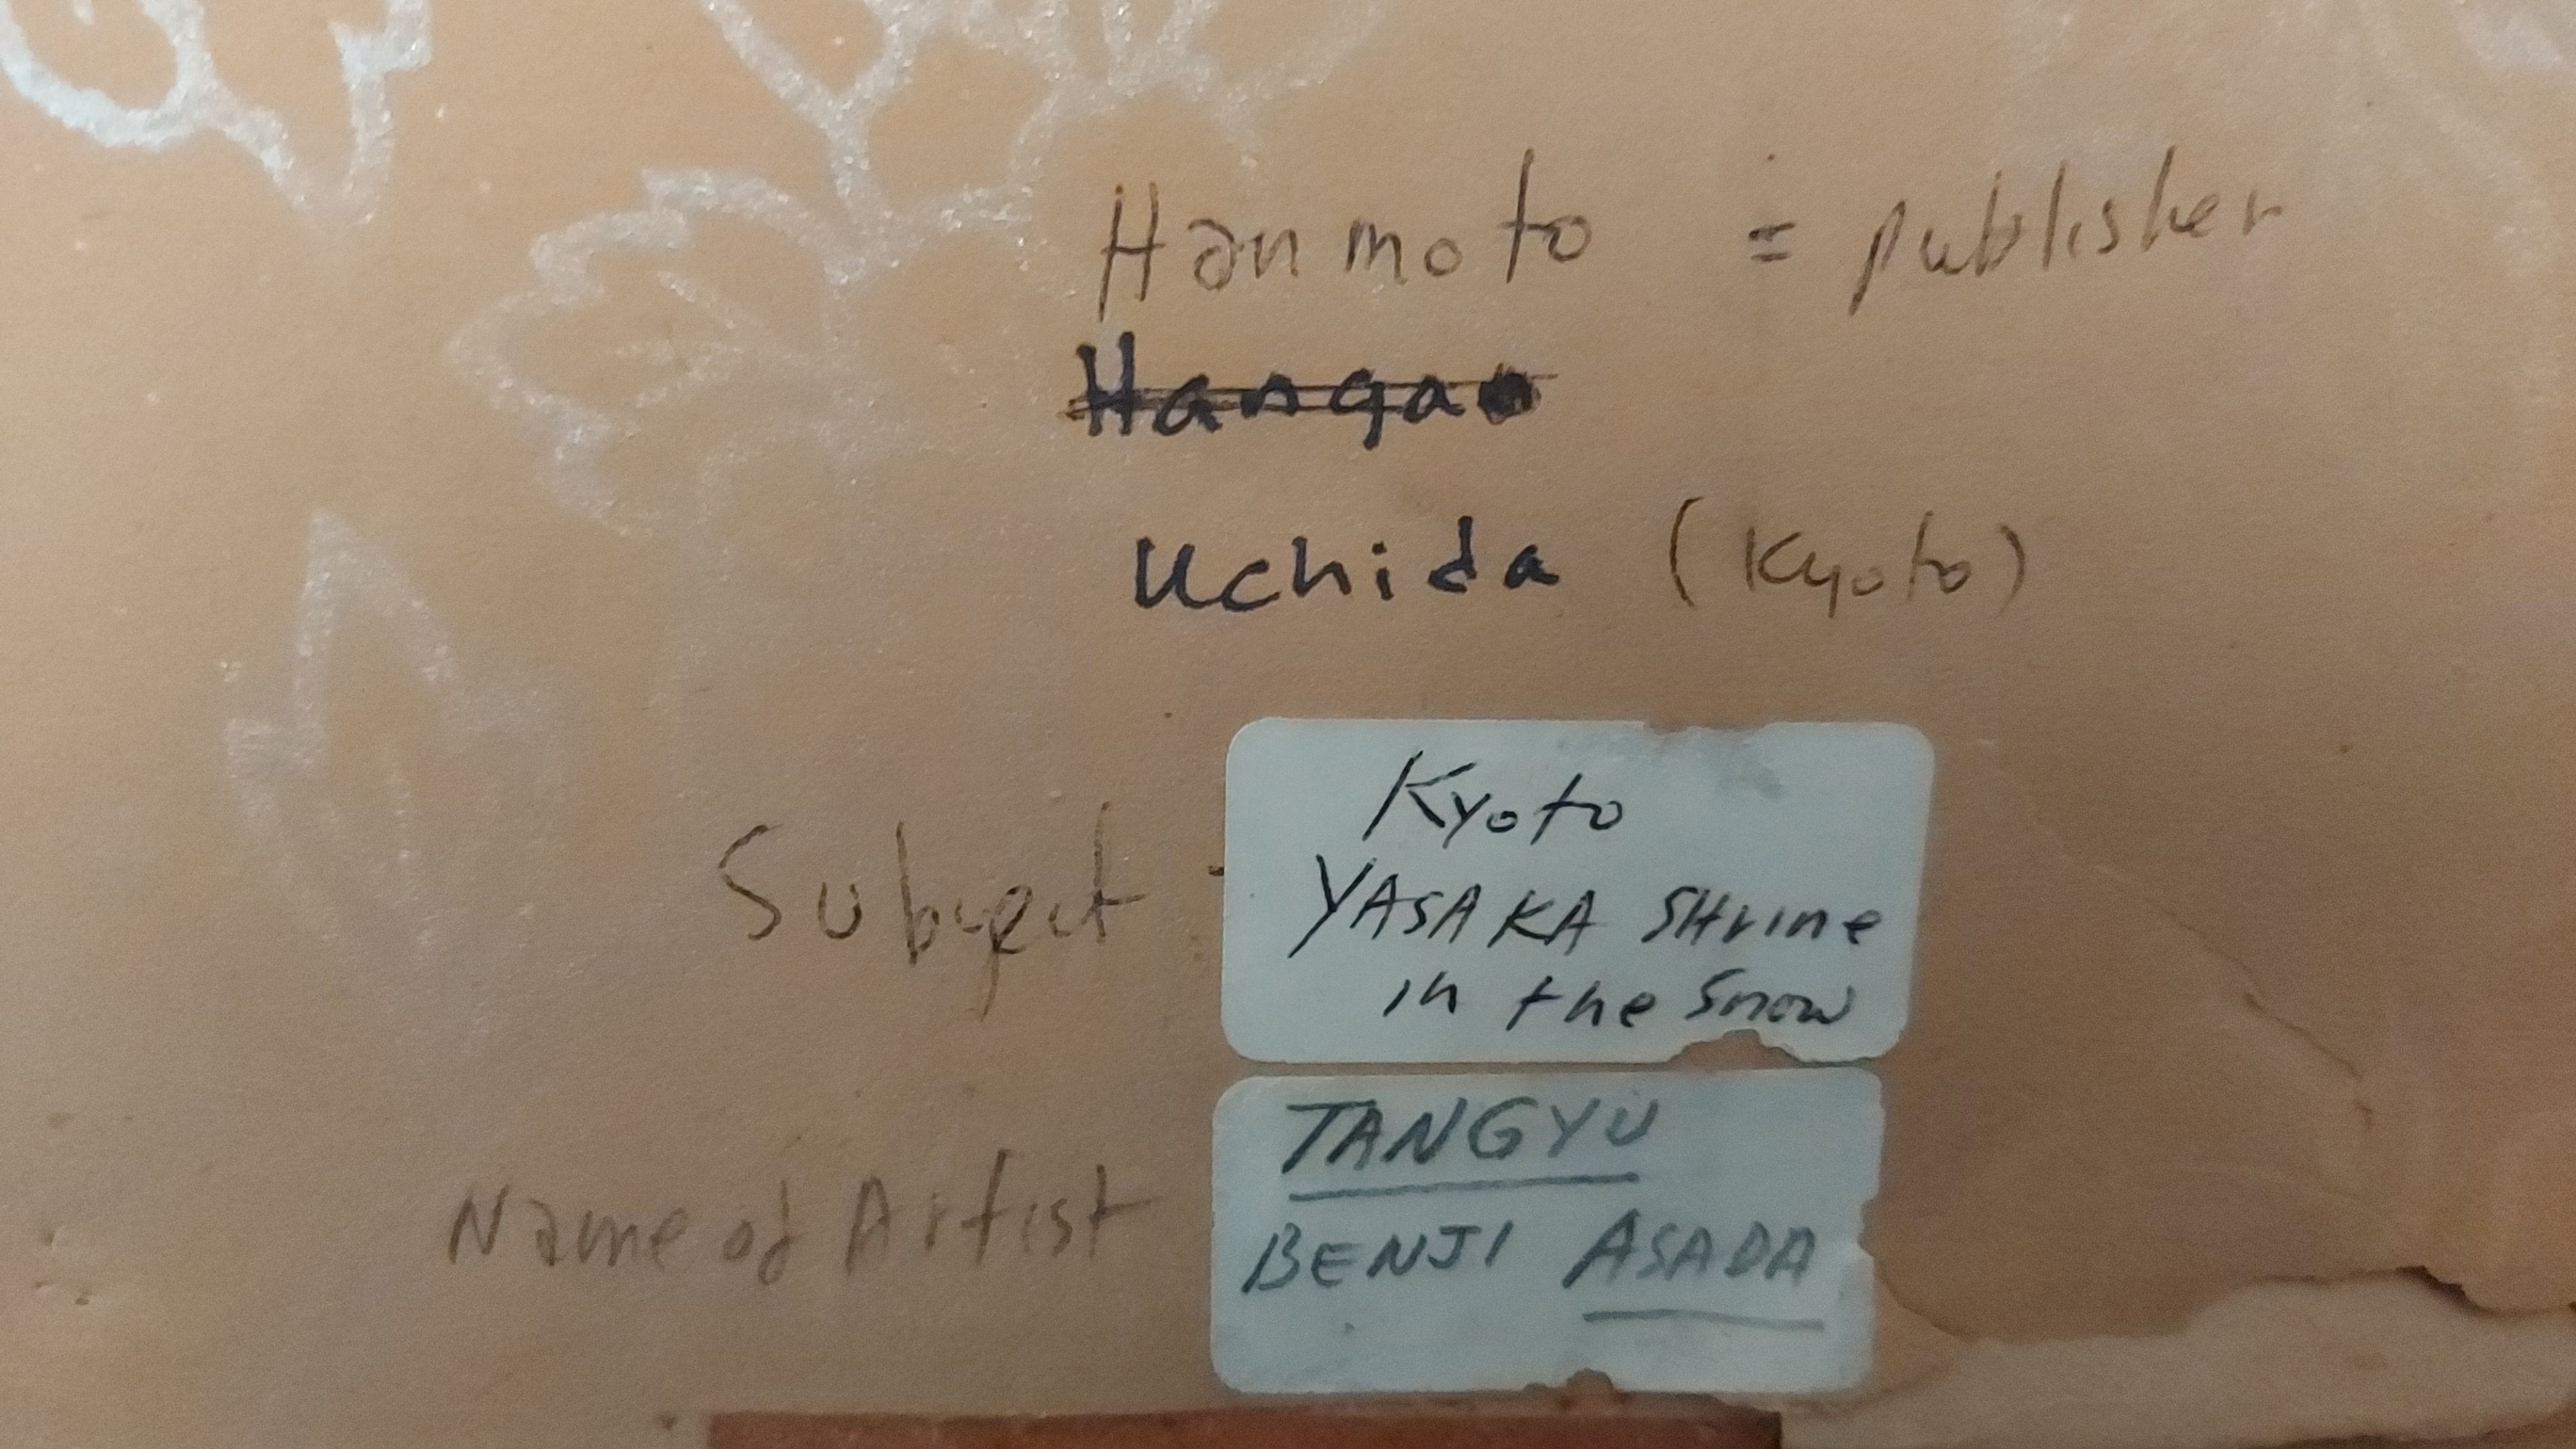 Hanmoto = publisher
Hanga
Uchida (Kyoto)
Kyoto
Subject - YASAKA SHrine
in the Snow
TANGYU
Name of Artist BENJI ASADA